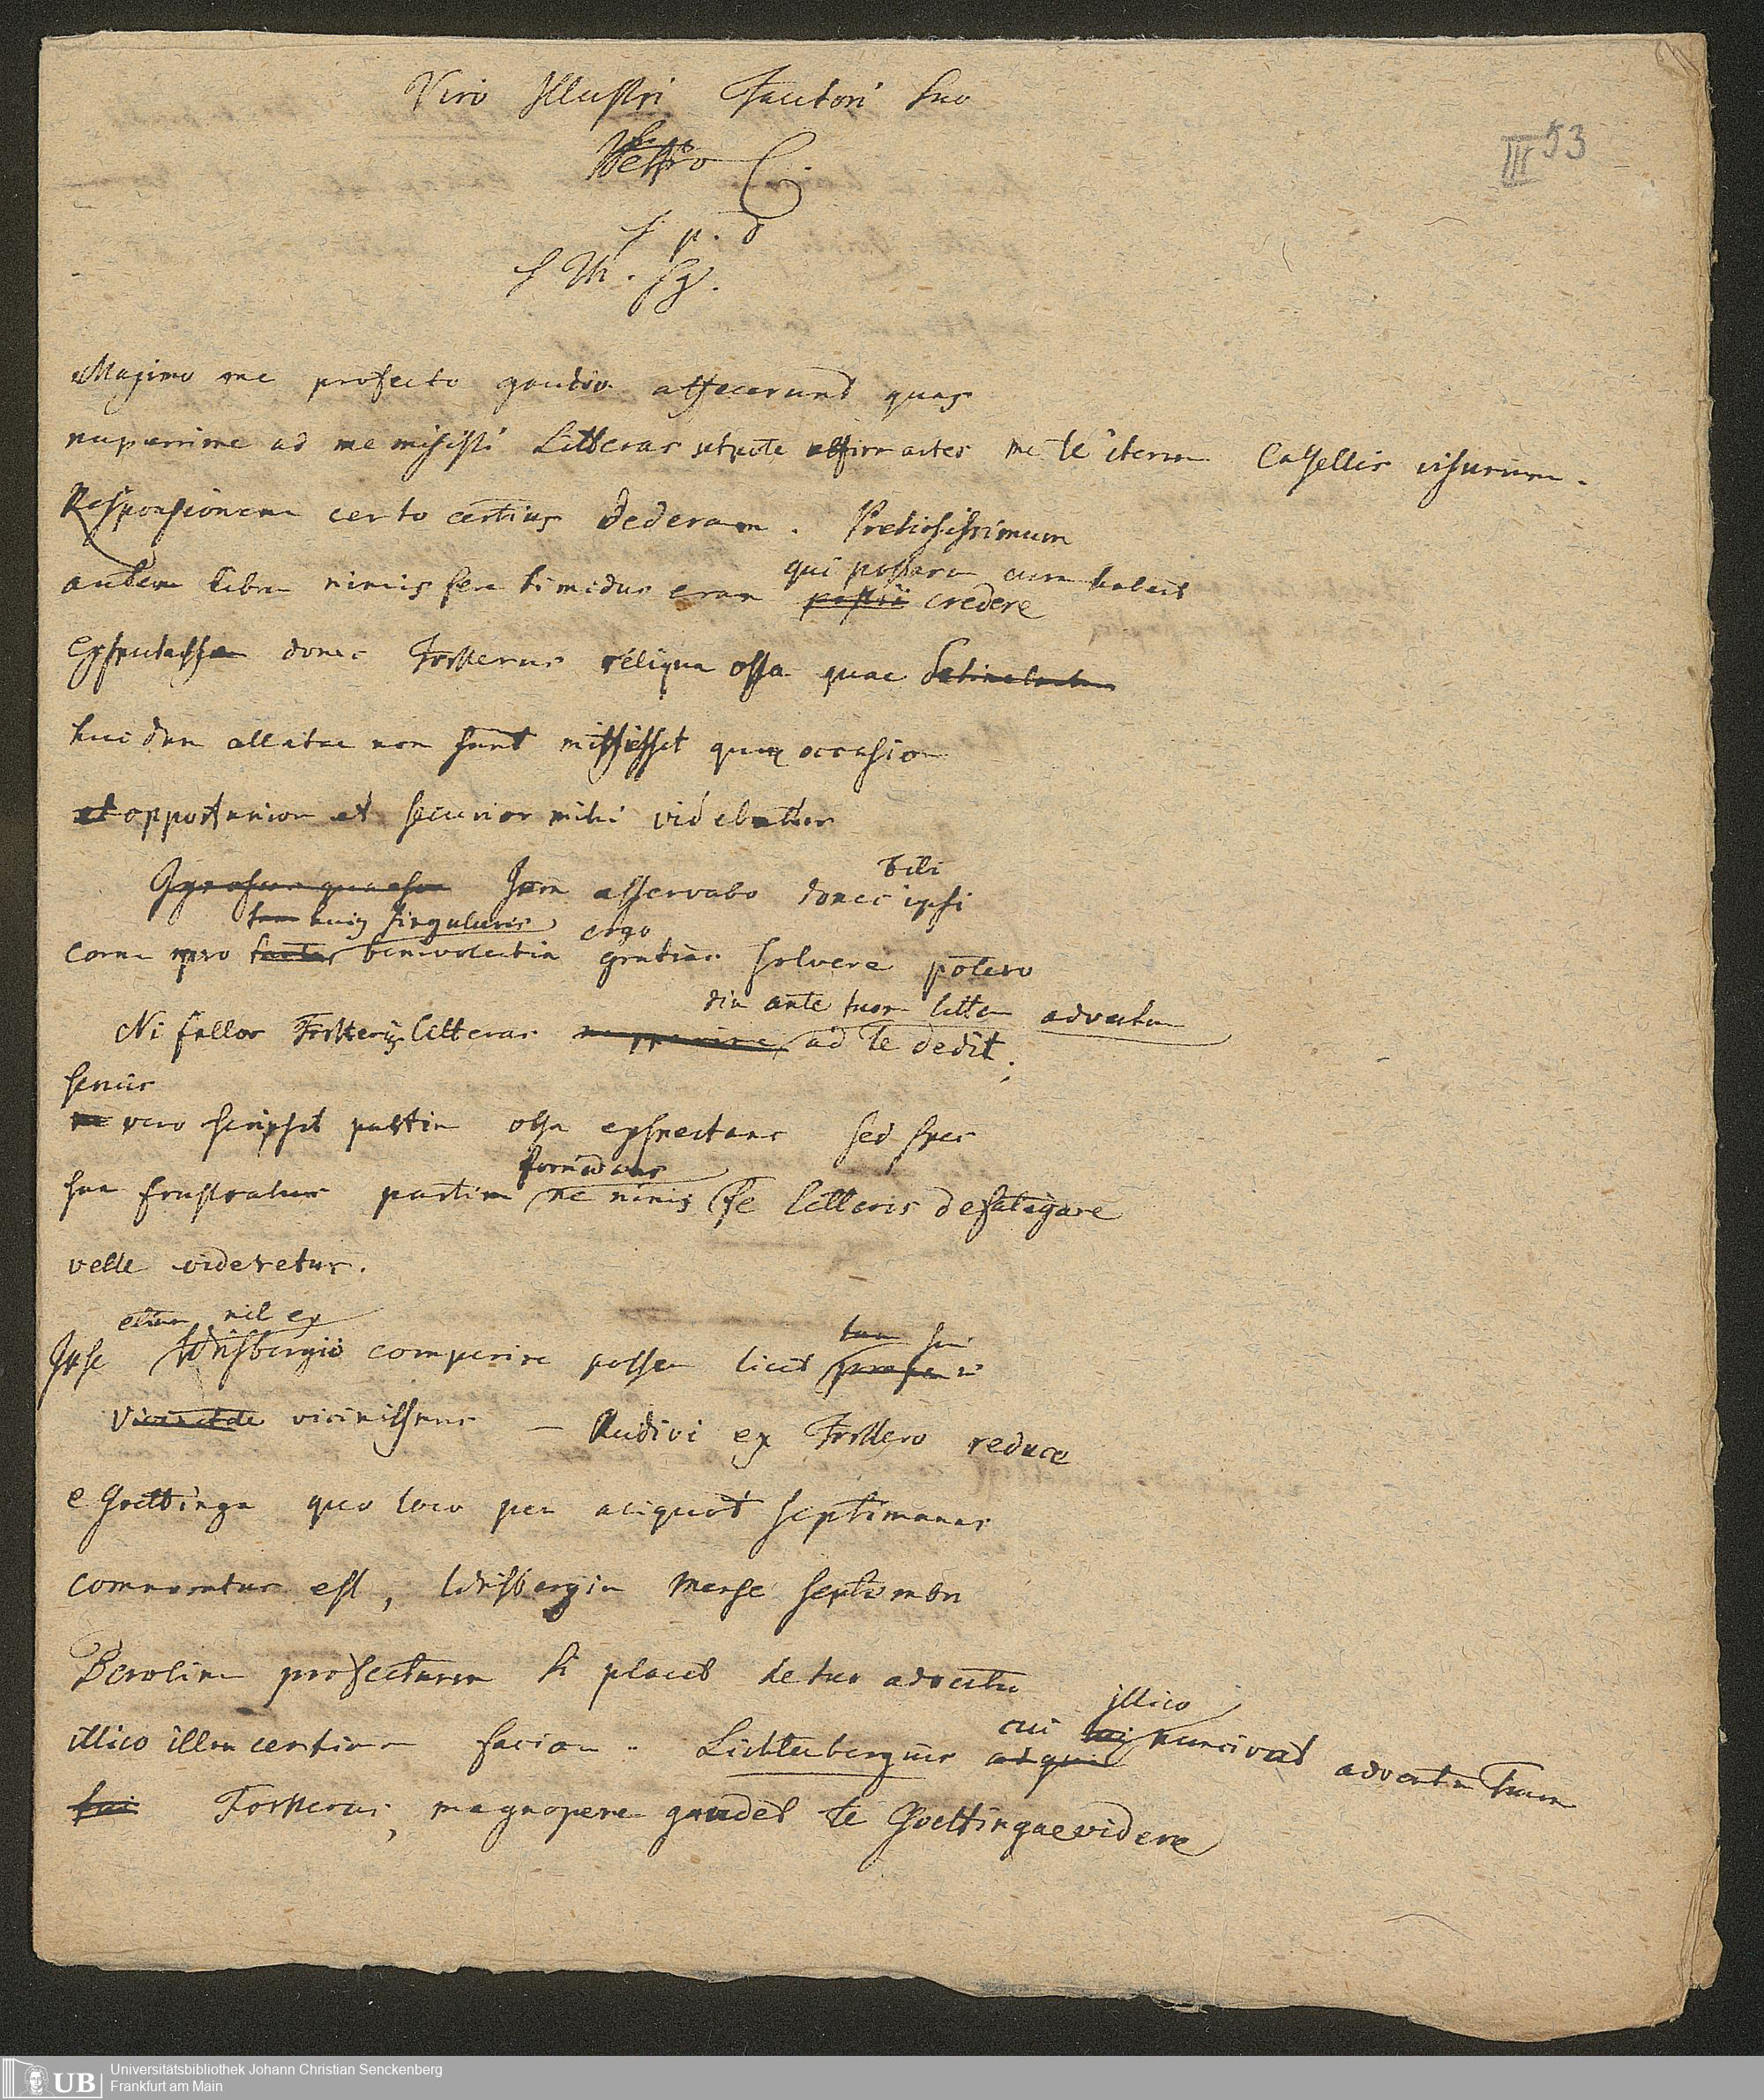 Viro Illustri Fautori suo
Petro C.
S. p. d
S Th. Sg.
III 53
Maximo me profecto gaudio affecerunt quas
nuperrime ad me misisti Litteras utpote affirmantes me te iterum Casellis visurum.
Responsionem certo certius dederam. Pretiosissimum
autem librum nimis fere timidus eram
qui possem cum tabell
credere
donec Forsterus reliqua ossa quae
huc dum allatae non sunt misisset quum occasio
et opportunior et securior mihi videbatur
Jam asservabo donec ipsi
tibi
huius singularis ergo
coram pro benevolentia gratias solvere potero
diu ante tuarum litter adventum
Ni fallor Forsterus litteras nuperrime ad te dedit;
serius
vero scripsit partim ossa expectans sed spes
formidans
sua frustratus partim ne nimis te litteris defatigare
velle videretur.
etiam nil ex
Ipse Wrisbergio comperire possem licet
tam sui
vicinissimus – Audivi ex Forstero reduce
e Goettinga quo loco per aliquot septimanas
commoratus est, Wrisbergium Mense Septembri
Berolinum profecturum si placet de tuo adventu
illico illum certiorem faciam. Lichtenbergius
cui illico nunciavit adventum tuum
Forsterus, magnopere gaudet te Goettingae videre
UB
Universitätsbibliothek Johann Christian Senckenberg
Frankfurt am Main